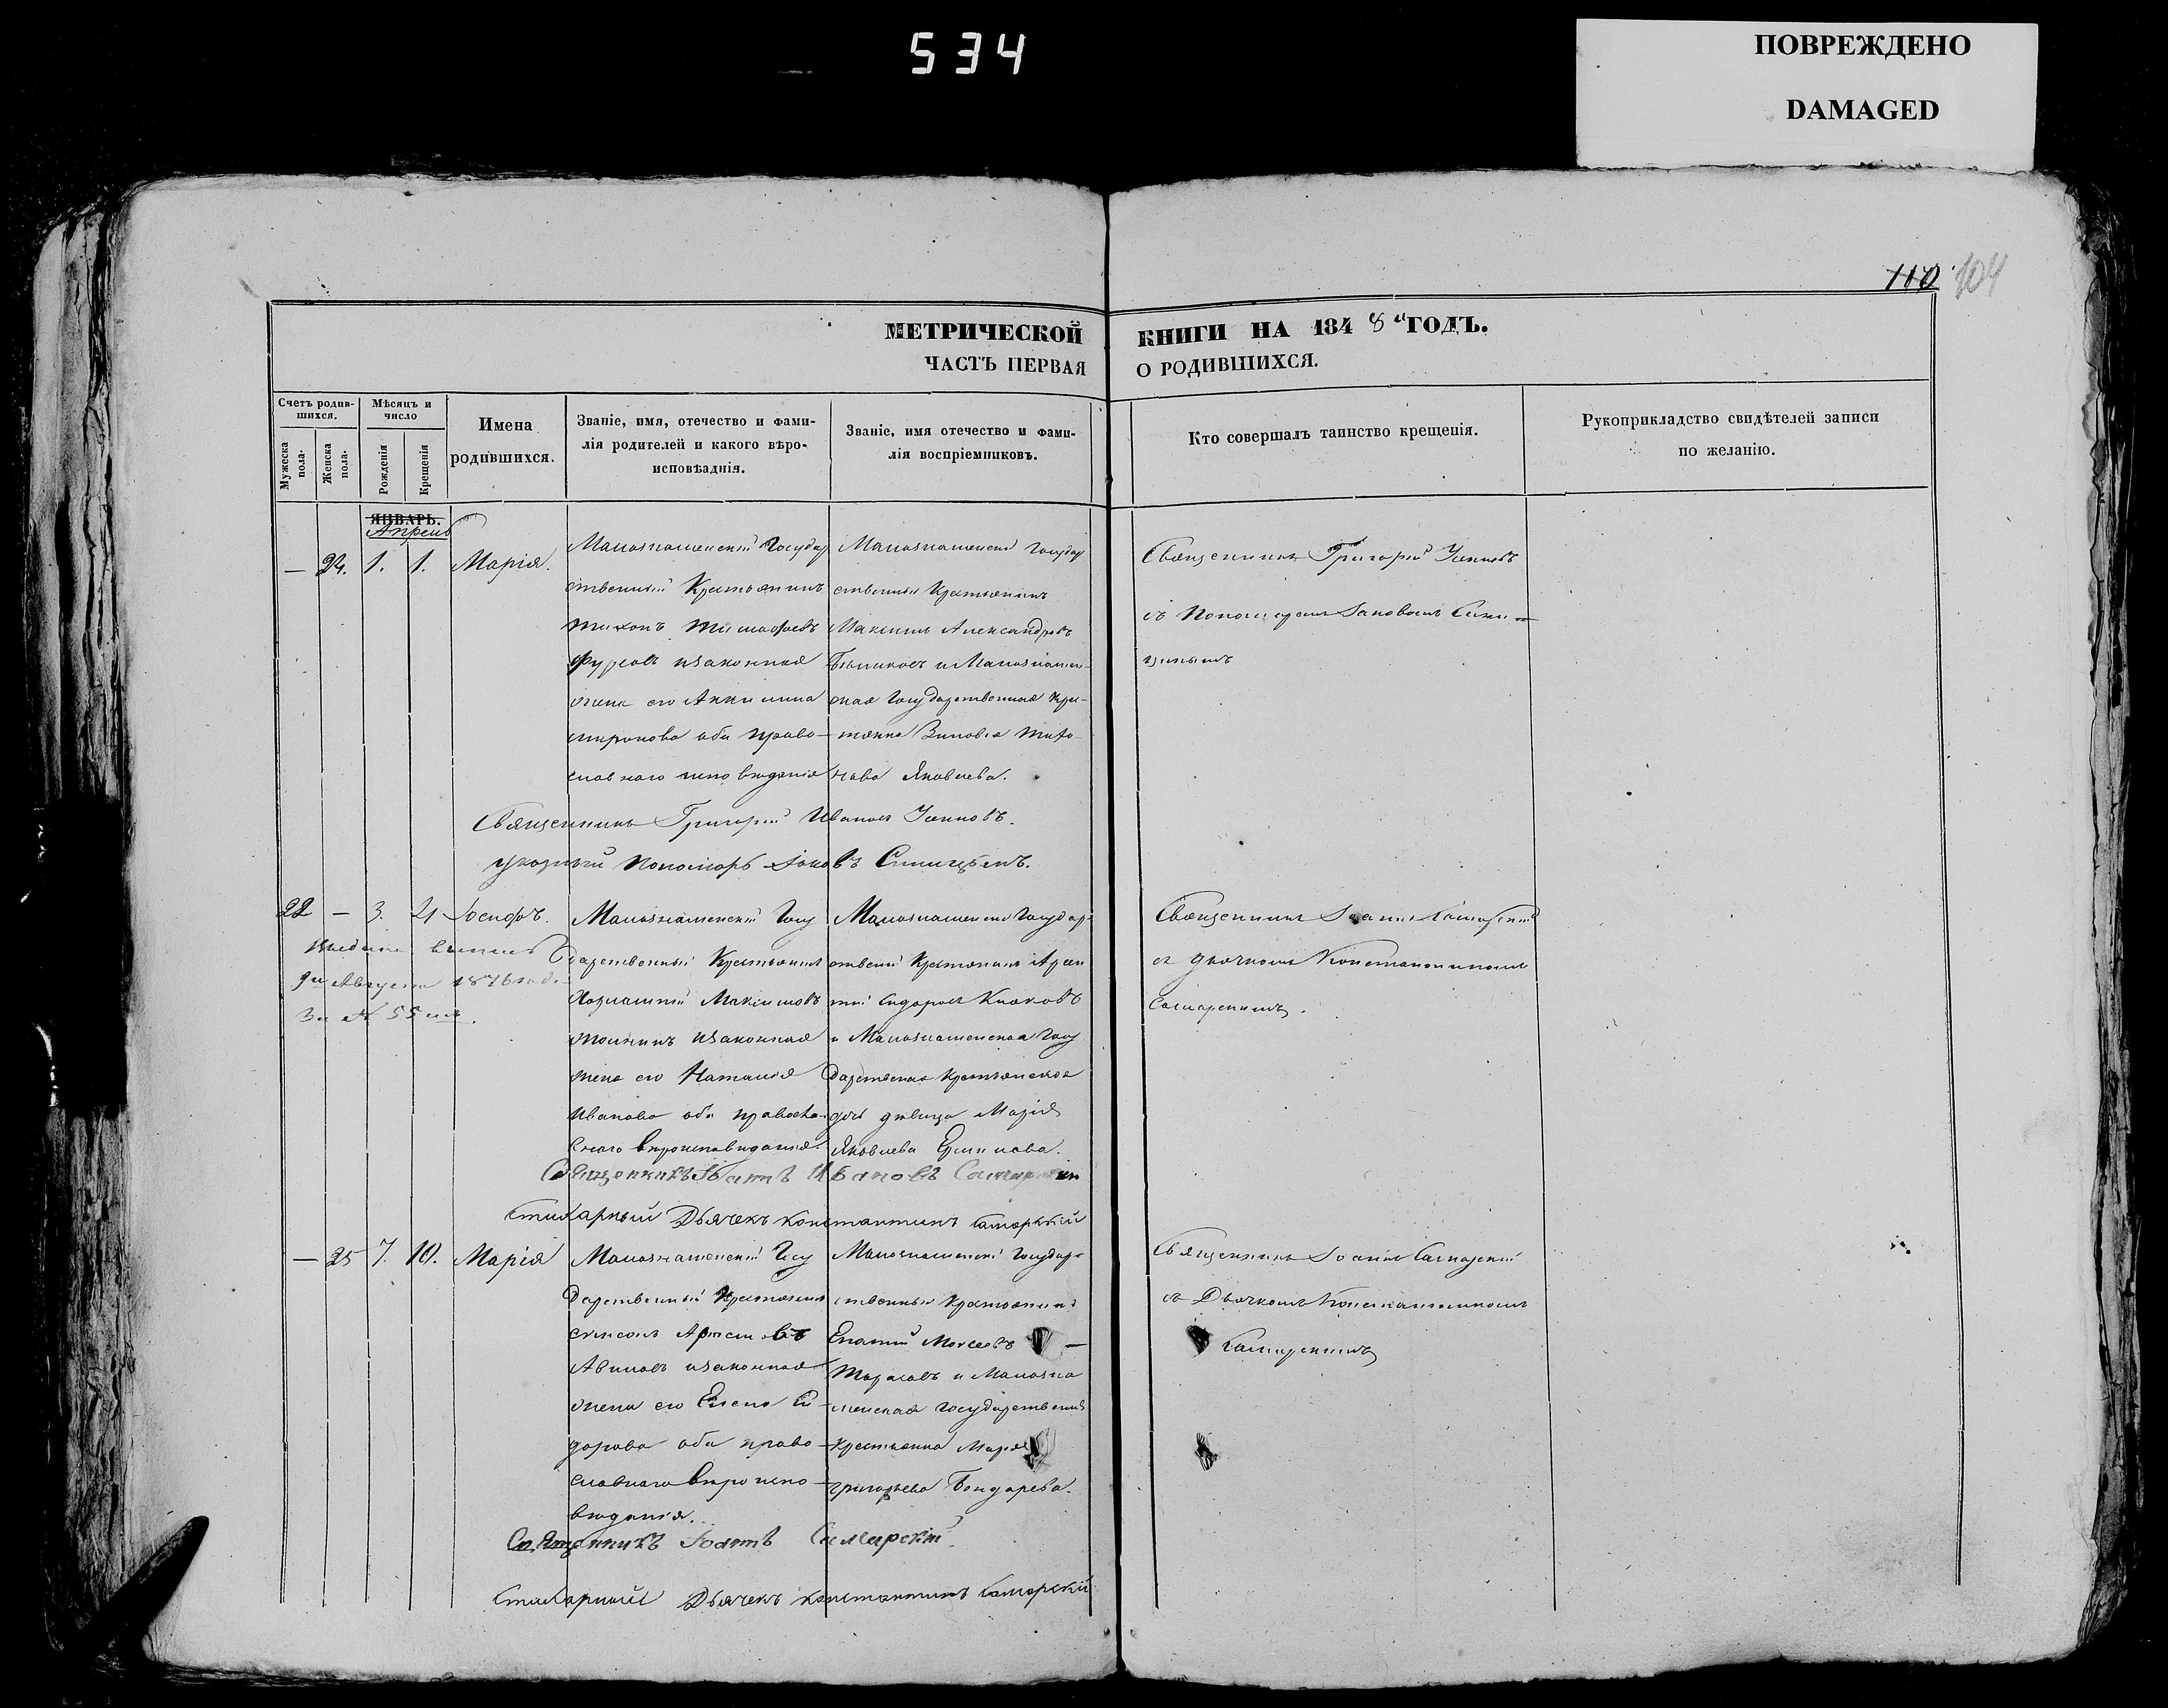 534
ПОВРЕЖДЕНО
DAMAGED
110 104
МЕТРИЧЕСКОЙ КНИГИ НА 1848 ГОДЪ.
ЧАСТЬ ПЕРВАЯ О РОДИВШИХСЯ.
Счетъ родившихся.
Мужеска пола.
Женска пола.
Мѣсяцъ и число
Рожденія
Крещенія
Имена
родившихся.
Званіе, имя, отечество и фами-
лія родителей и какого вѣро-
исповѣданія.
Званіе, имя отечество и фами-
лія воспріемниковъ.
Кто совершалъ таинство крещенія.
Рукоприкладство свидѣтелей записи
по желанію.
ЯНВАРЬ.
Апрель
— 24. 1. 1. Марія.
Малознаменскій Государ
ственный Крестьянинъ
Тихонъ Тимофѣевъ
изаконная
жена его
обѣ право-
славнаго исповѣданія
Малознаменскій Государ
ственный Крестьянинъ
Максимъ Александровъ
и Малознамен-
ская Государственная Кре-
стянка Зиновія Тихо-
нова Яковлева.
Священникъ Григорій
съ Пономаремъ Іаковомъ Сини-
цинымъ
Священникъ Григорій Ивановъ
указный Пономарь Іаковъ Синицынъ.
22 — 3. 4 Іосифъ.
Августа 1876 года
За № 55
Малознаменскій Госу
дарственный Крестьянинъ
Максимовъ
изаконная
жена его Наталія
Иванова обѣ правосла-
внаго вѣроисповѣданія.
Малознаменскій Государ-
ственный Крестянинъ
Сидоровъ
и Малознаменская Госу
дарственная Крестьянская
дочь дѣвица Марія
Яковлева
Священникъ Іоаннъ Самарскій
съ дьячкомъ Константиномъ
Самарскимъ.
Священникъ Іоаннъ Ивановъ Самарскій
Стихарный Дьячекъ Константинъ Самарскій
— 25 7. 10. Марія
Малознаменскій Госу
дарственный Крестянинъ
изаконная
жена его Елена Си-
дорова обѣ право-
славнаго вѣроиспо-
вѣданія.
Малознаменскій Государ-
ственный Крестянинъ
Моисеевъ —
Тарасовъ и Малозна
менская Государственная
Крестьянка Марія
Григорьева Бондарева.
Священникъ Іоаннъ Самарскій
съ Дьячкомъ Константиномъ
Самарскимъ
Священникъ Іоаннъ Самарскій
Стихарный Дьячекъ Константинъ Самарскій